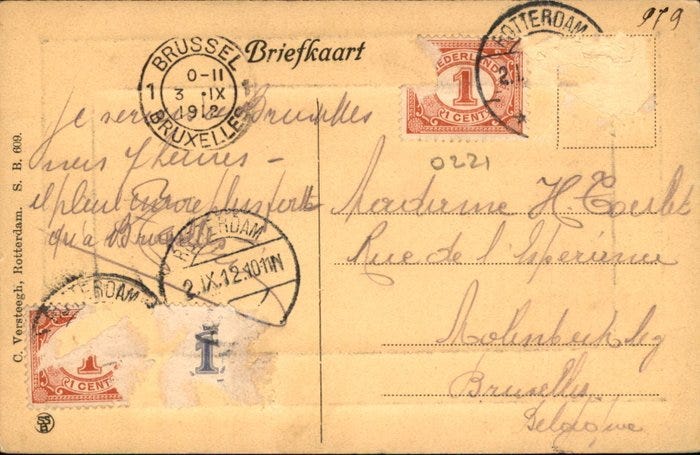 979
Briefkaart
BRUSSEL
0-11
1 3 IX 1
1912
BRUXELLES
ROTTERDAM
2.
NEDERLAND
1
CENT
0221
Je serai Bruxelles
vers 7 heures -
il pleut encore plus fort
qu'a Bruxelles
ROTTERDAM
2.IX.12.10-11N
ROTTERDAM
1
CENT
1
Madame H.
Rue de l'Espérance
Molenbeek
Bruxelles
Belgique
C. Versteegh, Rotterdam. S. B. 609.